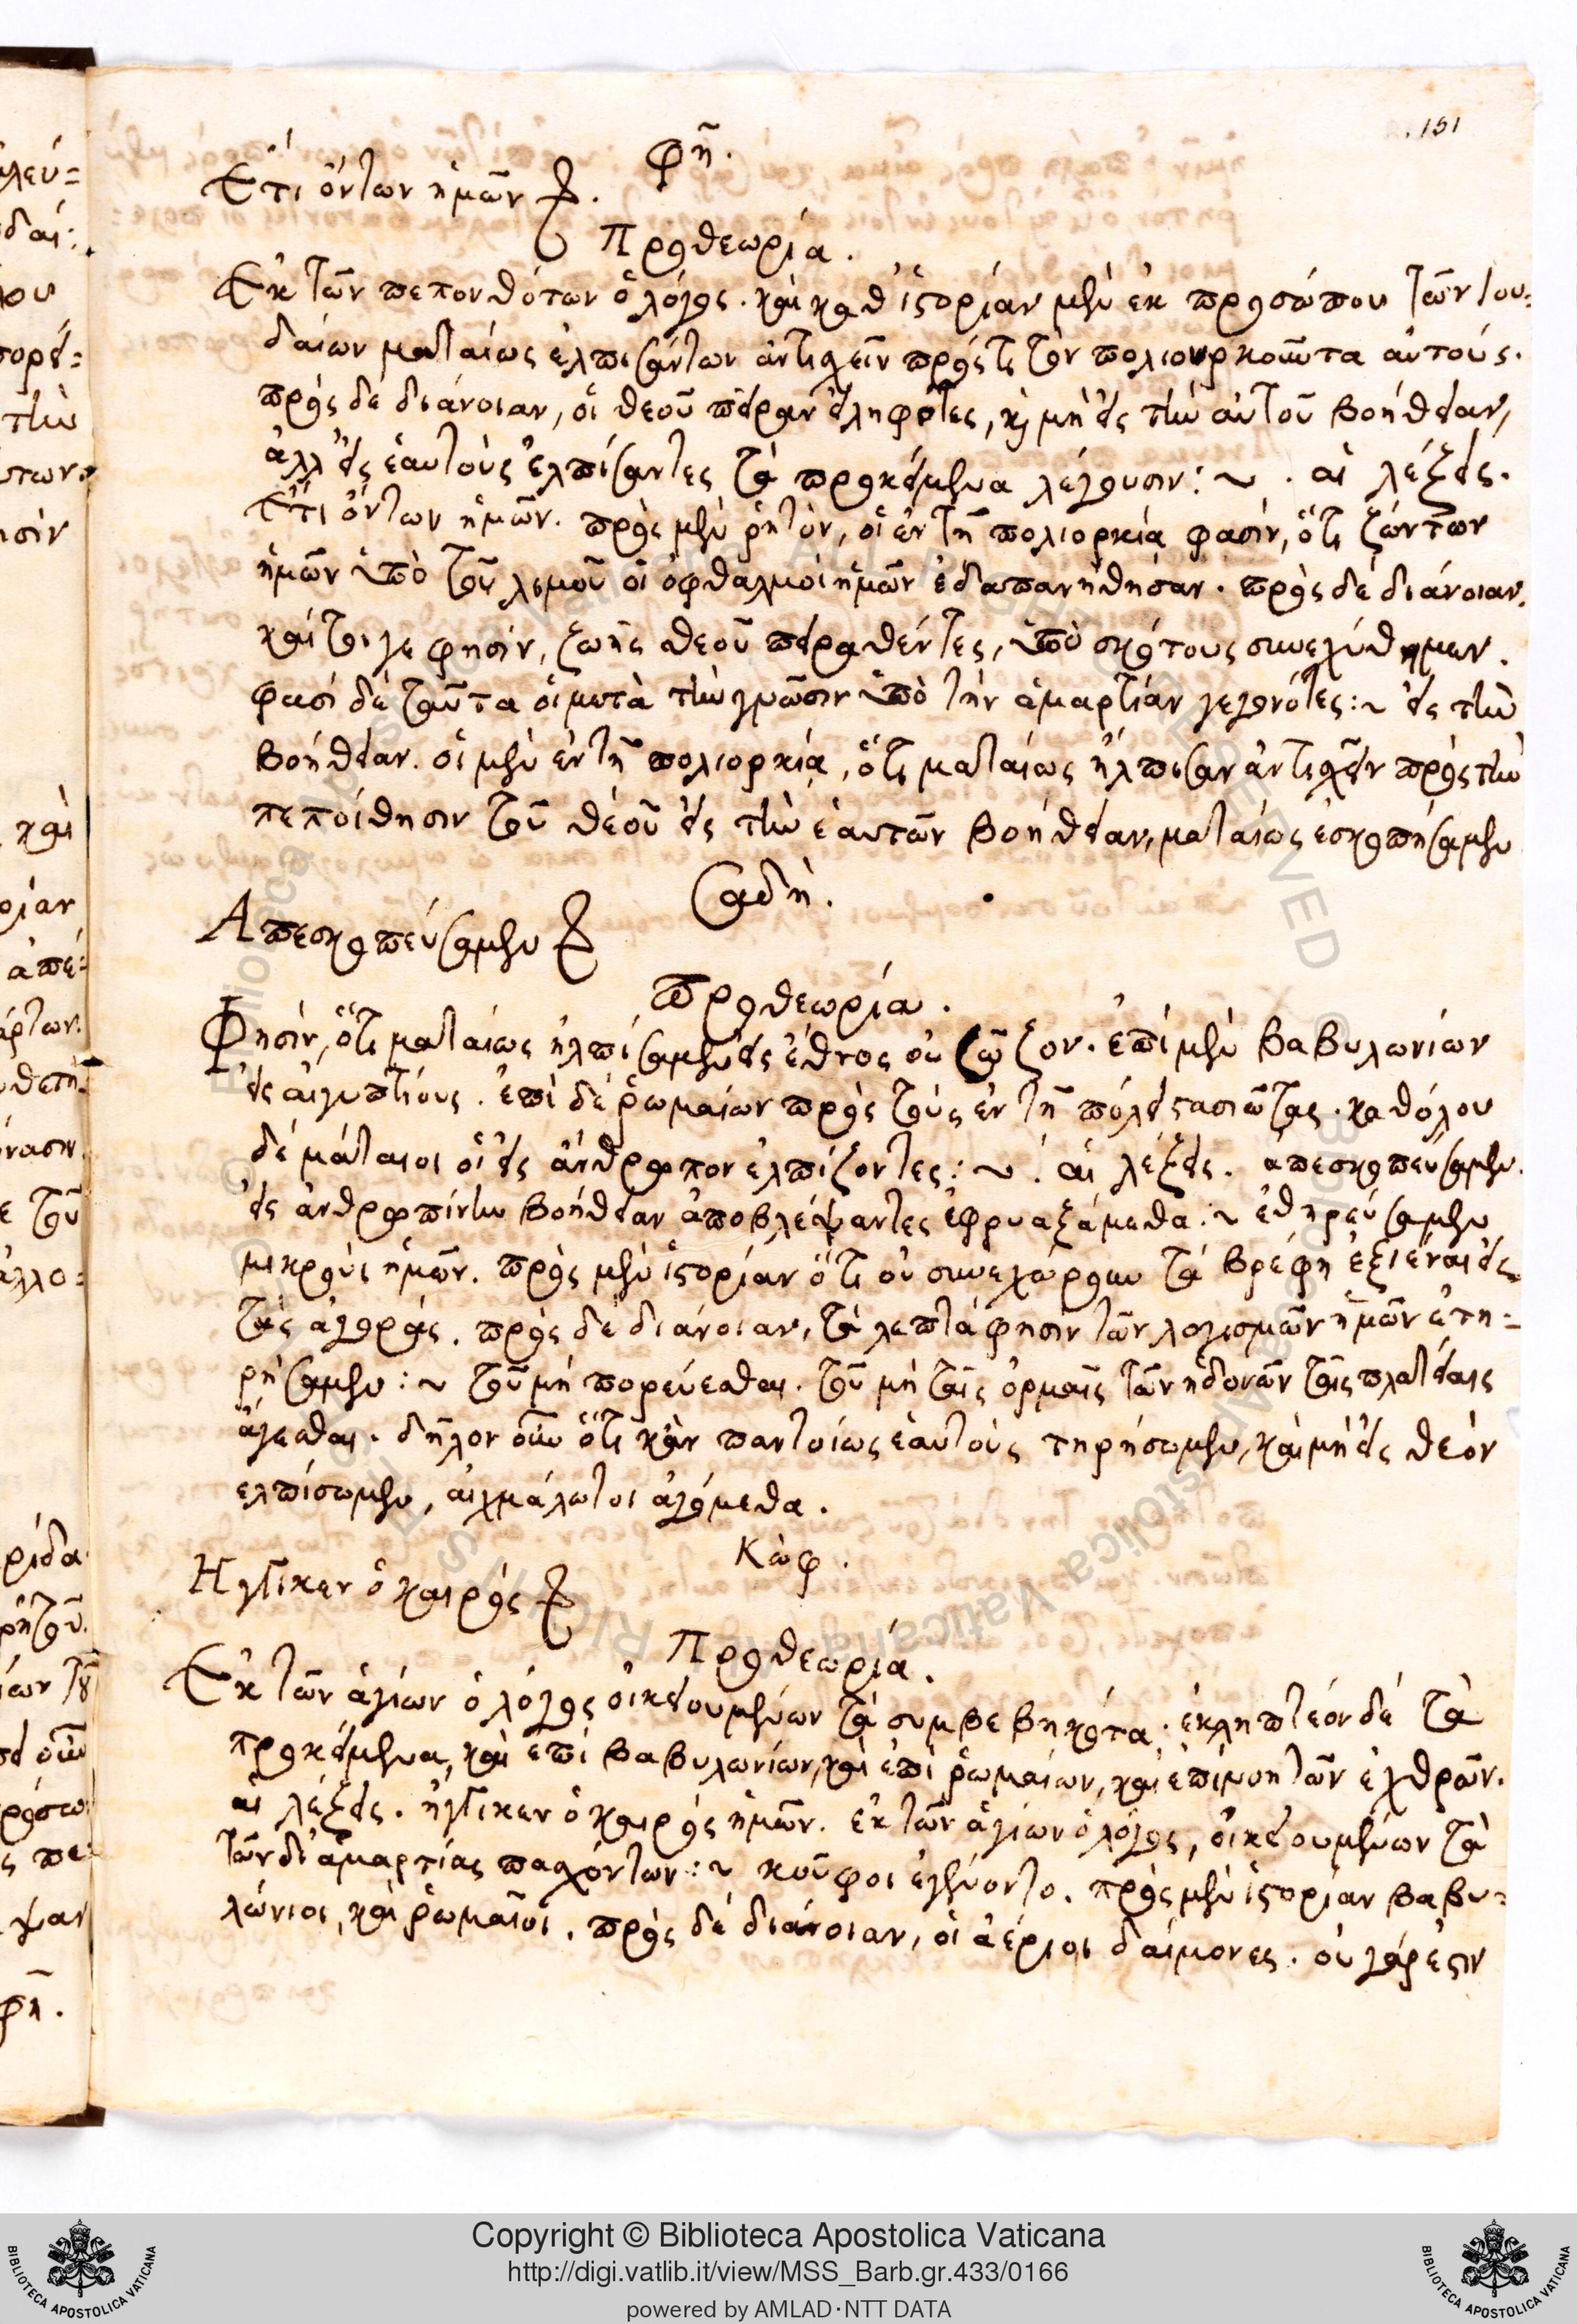 .151
φῆ.
Ἔτι ὄντων ἡμῶν
Προθεωρία.
Ἐκ τῶν πεπονθότων ὁ λόγος. καὶ καθ' ἱστορίαν μὲν ἐκ προσώπου τῶν Ἰου=
δαίων ματαίως ἐλπισάντων ἀντισχεῖν πρός τε τὸν πολιουρκοῦντα αὐτούς.
πρὸς δὲ διάνοιαν, οἱ θεοῦ πεῖραν εἰληφότες, κὶ μὴ εἰς τὴν αὐτοῦ βοήθειαν,
ἀλλ' εἰς ἑαυτοὺς ἐλπίσαντες τὰ προκείμενα λέγουσιν: ~ . αἱ λέξεις.
Ἔτι ὄντων ἡμῶν. πρὸς μὲν ῥητὸν, οἱ ἐν τῇ πολιορκία φασίν, ὅτι ζώντων
ἡμῶν ὑπὸ τοῦ λιμοῦ οἱ ὀφθαλμοὶ ἡμῶν ἐδαπανήθησαν. πρὸς δὲ διάνοιαν.
καί τοι γε φησίν, ζωῆς θεοῦ πειραθέντες, ὑπὸ σκότους συνεχύθημεν.
φασὶ δὲ ταῦτα οἱ μετὰ τὴν γνῶσιν ὑπὸ τὴν ἁμαρτίαν γεγονότες: ~ εἰς τὴν
βοήθειαν. οἱ μὲν ἐν τῇ πολιορκία, ὅτι ματαίως ἤλπισαν ἀντισχεῖν πρὸς τὴν
πεποίθησιν τοῦ θεοῦ εἰς τὴν ἑαυτῶν βοήθειαν, ματαίως ἐσκοπήσαμεν
Σαδή.
Ἀπεσκοπεύσαμεν
προθεωρία.
Φησίν, ὅτι ματαίως ἠλπίσαμεν εἰς ἔθνος οὐ σῶζον. ἐπὶ μὲν βαβυλωνίων
εἰς αἰγυπτίους. ἐπὶ δὲ ῥωμαίων πρὸς τοὺς ἐν τῇ πόλει στασιώτας. καθόλου
δὲ μάταιοι οἱ εἰς ἄνθρωπον ἐλπίζοντες: ~ . αἱ λέξεις. ἀπεσκοπεύσαμεν.
εἰς ἀνθρωπίνην βοήθειαν ἀποβλέψαντες ἐφρυαξάμεθα: ~ ἐθηρεύσαμεν
μικροὺς ἡμῶν. πρὸς μὲν ἱστορίαν ὅτι οὐ συνεχώρουν τὰ βρέφη ἐξιέναι εἰς
τὰς ἀγοράς. πρὸς δὲ διάνοιαν, τὰ λεπτά φησιν τῶν λογισμῶν ἡμῶν ἐτη=
ρήσαμεν: ~ τοῦ μὴ πορεύεσθαι. τοῦ μὴ ταῖς ὁρμαῖς τῶν ἡδονῶν ταῖς πλατείαις
ἄγεσθαι. δῆλον οὖν ὅτι κἂν παντοίως ἑαυτοὺς τηρήσωμεν, καὶ μὴ εἰς θεόν
ελπίσωμεν, αἰχμάλωτοι ἀγόμεθα.
Κώφ.
Ἤγγικεν ὁ καιρός
Προθεωρία.
Ἐκ τῶν ἁγίων ὁ λόγος οἰκειουμένων τὰ συμβεβηκότα. ἐκληπτέον δὲ τὰ
προκείμενα, καὶ ἐπὶ βαβυλωνίων, καὶ ἐπὶ ῥωμαίων, καὶ ἐπὶ νοητῶν ἐχθρῶν.
αἱ λέξεις. ἤγγικεν ὁ καιρὸς ἡμῶν. ἐκ τῶν ἁγίων ὁ λόγος, οἰκειουμένων τὰ
τῶν δι' ἁμαρτίας παθόντων: ~ κοῦφοι ἐγένοντο. πρὸς μὲν ἱστορίαν βαβυ=
λώνιοι, καὶ ῥωμαῖοι. πρὸς δὲ διάνοιαν, οἱ ἀέριοι δαίμονες. οὐ γάρ ἐστιν
Copyright © Biblioteca Apostolica Vaticana
http://digi.vatlib.it/view/MSS_Barb.gr.433/0166
powered by AMLAD·NTT DATA
BIBLIOTECA APOSTOLICA VATICANA
BIBLIOTECA APOSTOLICA VATICANA